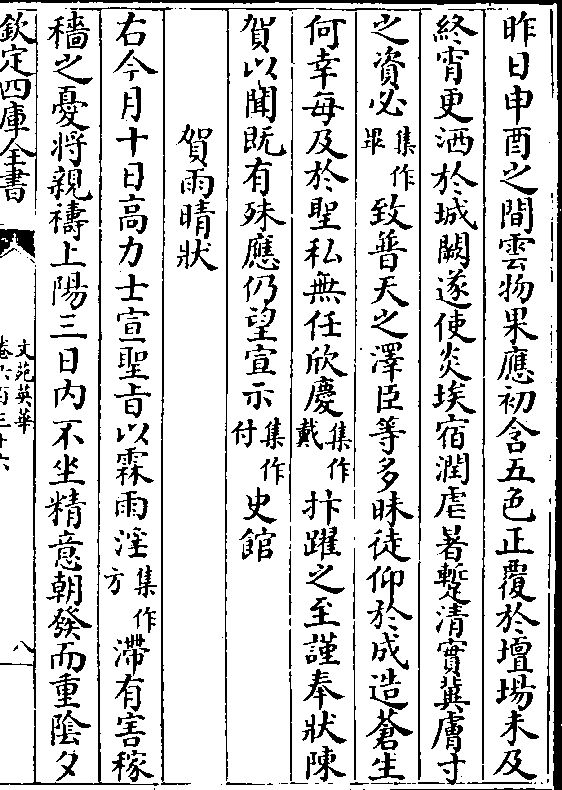 昨日申酉之間雲物果應初含五色正覆於壇場未及
終宵更洒於城闕遂使炎埃宿潤虐暑蹔清實冀膚寸
之資必集作畢致普天之澤臣等多昧徒仰於成造蒼生
何幸每及於聖私無任欣慶集作戴抃躍之至謹奉狀陳
賀以聞既有殊應仍望宣示集作付史館
賀雨晴狀
右今月十日高力士宣聖旨以霖雨淫集作方滯有害稼
穡之憂將親禱上陽三日内不坐精意朝發而重陰夕
欽定四庫全書
文苑英華
卷六百三十六
八